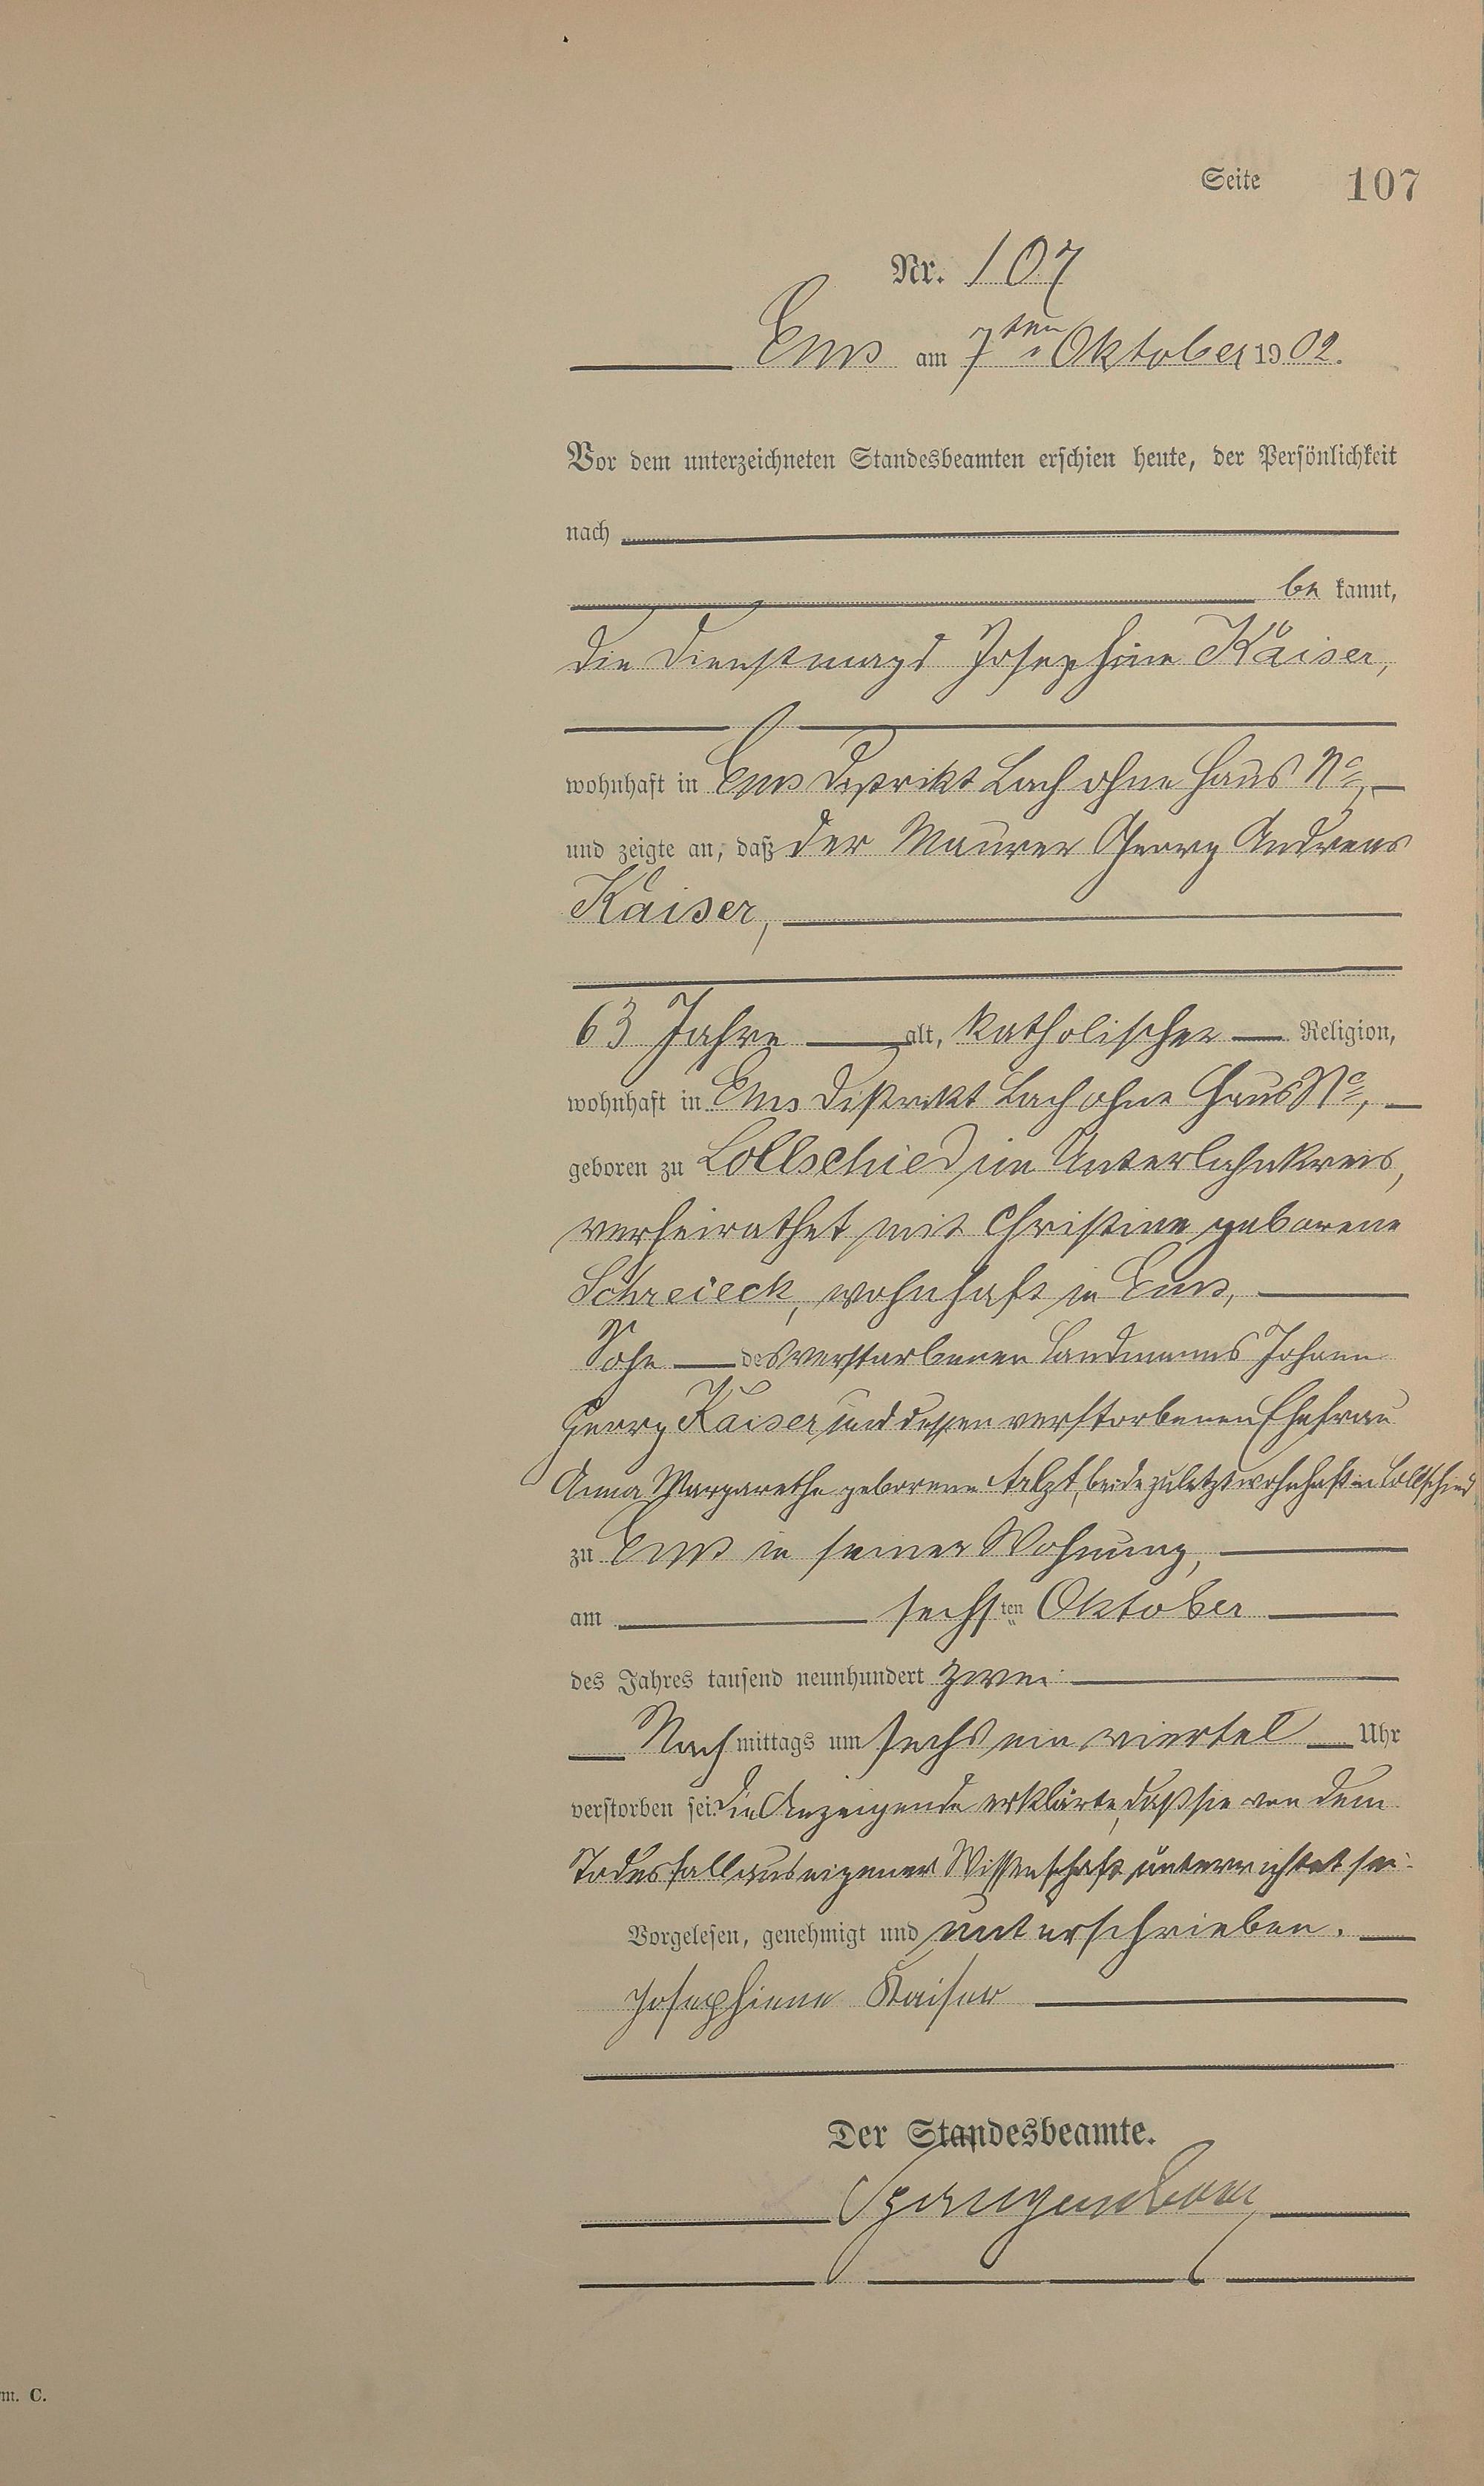 Seite 107
Nr. 107
Ems am 7ten Oktober 1902.
Vor dem unterzeichneten Standesbeamten erschien heute, der Persönlichkeit
nach
be kannt,
die Dienstmagd Josephine Kaiser,
wohnhaft in Ems Distrikt Lach ohne Haus No,
und zeigte an, daß der Maurer Georg Andreas
Kaiser,
63 Jahre alt, katholischer Religion,
wohnhaft in Ems Distrikt Lach ohne Haus No,
geboren zu Lollschied im Unterlahnkreis,
verheirathet mit Christine geborene
Schreieck, wohnhaft in Ems,
Sohn des verstorbenen Landmanns Johann
Georg Kaiser und dessen verstorbenen Ehefrau
Anna Margarethe geborene beide zuletzt wohnhaft in Lollschied
zu Ems in seiner Wohnung,
am sechsten Oktober
des Jahres tausend neunhundert zwei
Nachmittags um sechs ein viertel Uhr
verstorben sei. Die Anzeigende erklärte, daß sie von dem
Todesfall aus eigener Wissenschaft unterrichtet sei.
Vorgelesen, genehmigt und unterschrieben.
Josephiene Kaiser
Der Standesbeamte.
m. C.